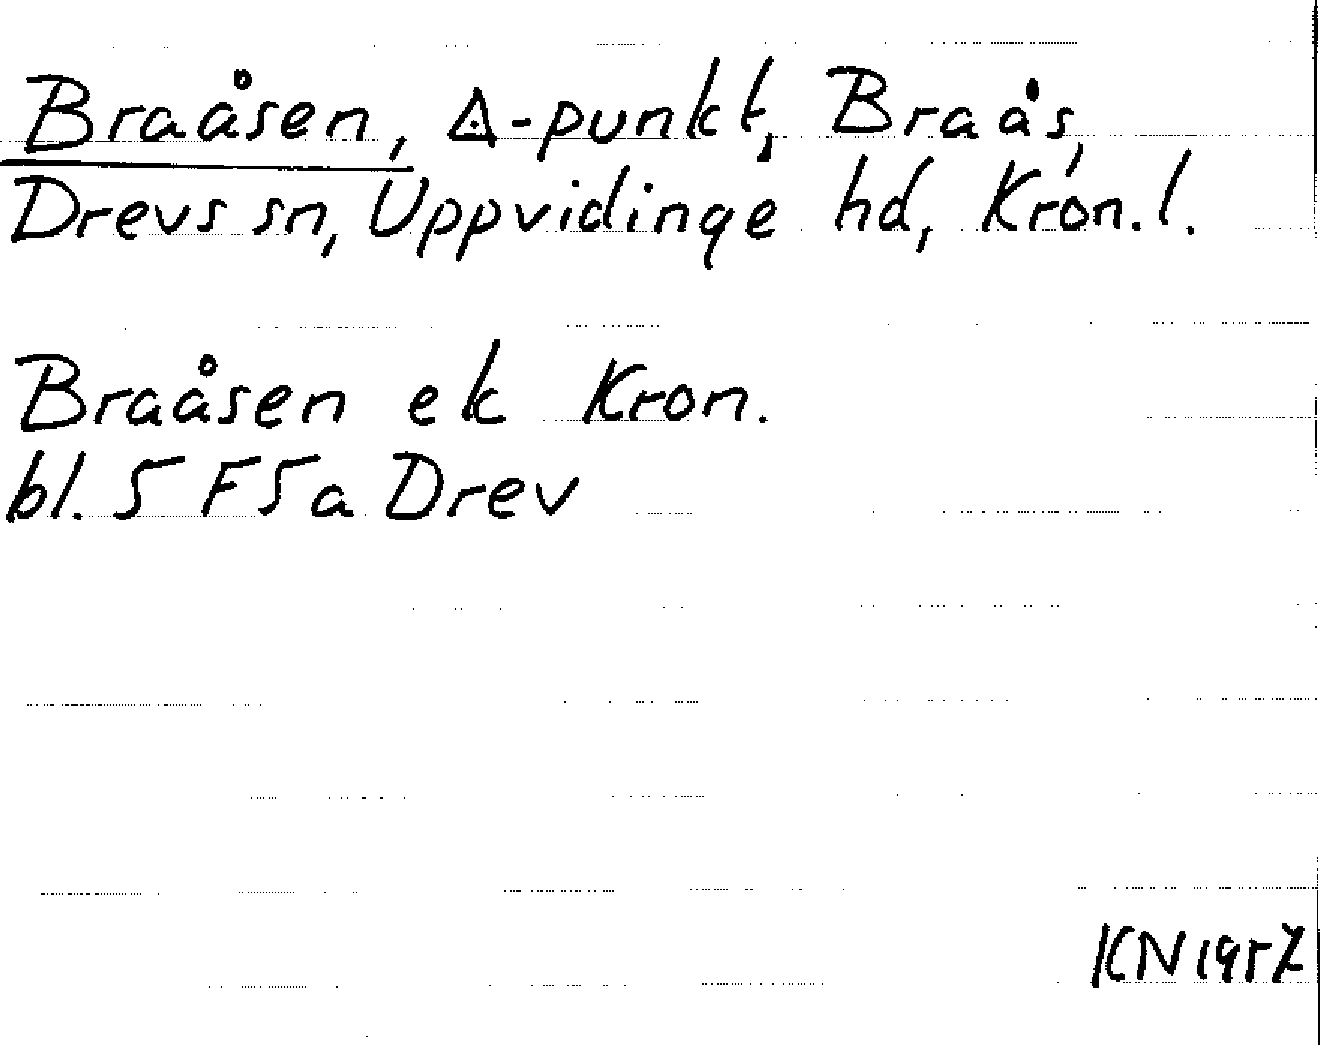 Braåsen, ∆-punkt, Braås,
Drevs sn, Uppvidinge hd, Kron. l.
Braåsen ek Kron.
bl. 5 F 5 a Drev
KN 1957